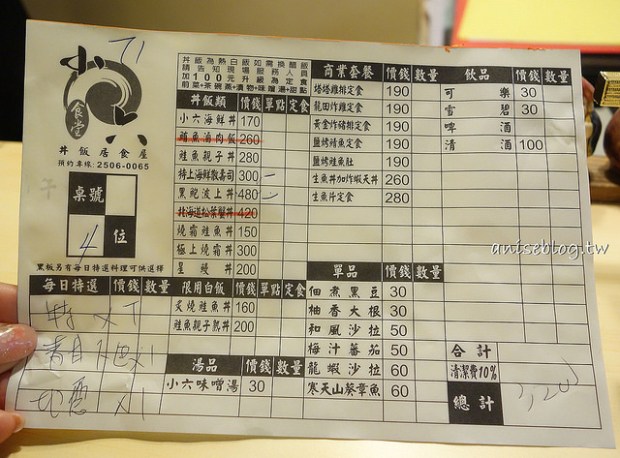 小六
食堂
丼飯居食屋
預約專線：2506-0065
桌號
4 位
黑板另有每日特選料理可供選擇
丼飯為熱白飯如需換醋飯
請告知現場服務人員
加100元升級為定食
前菜+茶碗蒸+漬物+味噌湯+甜點
丼飯類 價錢 單點 定食
小六海鮮丼 170
鮪魚滷肉飯 260
鮭魚親子丼 280
特上海鮮散壽司 300
黑鮑波上丼 480
北海道松葉蟹丼 420
燒霜鮭魚丼 150
極上燒霜丼 300
星鰻丼 200
商業套餐 價錢 數量
塔塔雞排定食 190
龍田炸雞定食 190
黃金炸豬排定食 190
鹽烤鯖魚定食 190
鹽烤鮭魚肚 190
生魚丼加炸蝦天丼 260
生魚片定食 280
飲品 價錢 數量
可樂 30
雪碧 30
啤酒
清酒 100
antseblog.tw
每日特選 價錢 數量
x1
x1
x1
限用白飯 價錢 單點 定食
炙燒鮭魚丼 160
鮭魚親子熟丼 200
湯品 價錢 數量
小六味噌湯 30
單品 價錢 數量
佃煮黑豆 30
柚香大根 30
和風沙拉 50
梅汁蕃茄 50
龍蝦沙拉 60
寒天山葵章魚 60
合計
清潔費10%
總計